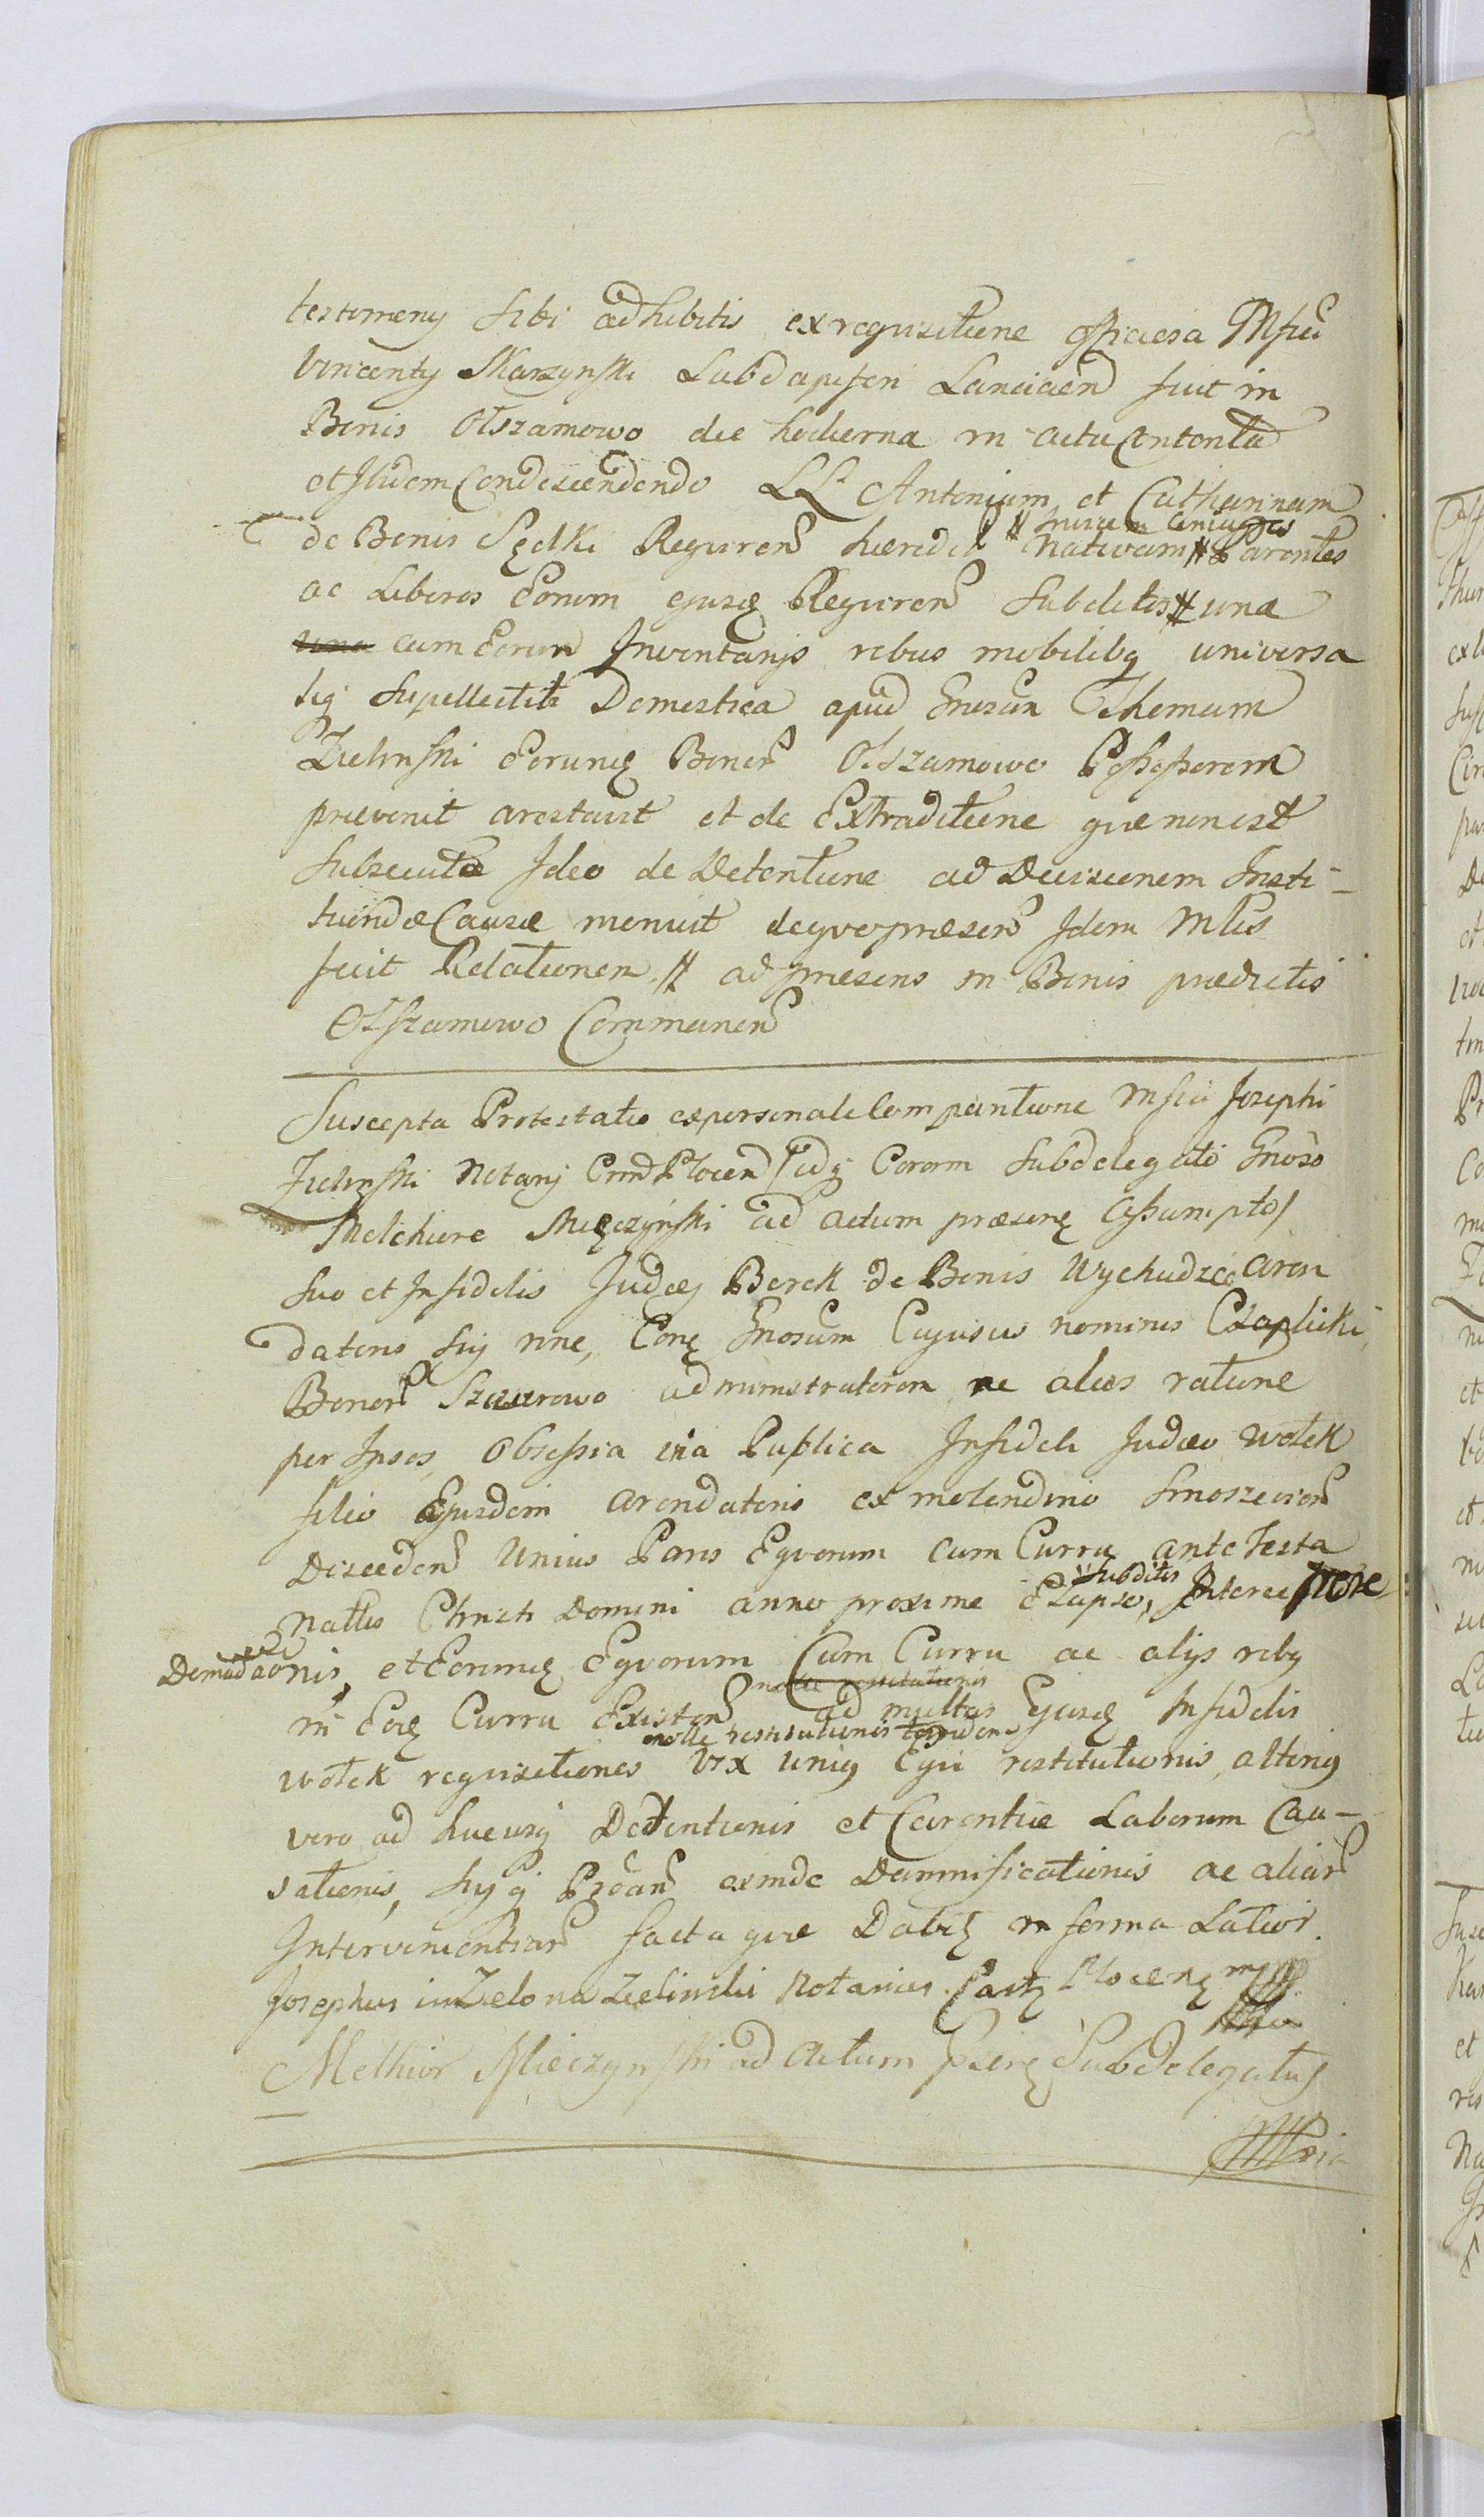 testimonij sibi adhibitis ex requisitione Mfici
Vincentij Skarzynski Subdapiferi Lanciciens fuit in
Bonis Olszamowo die hodierna in actu Contenta
et Ibidem Condescendendo LL Antonium et Catharinam
# invicem Coniuges
de Bonis Sędki Requiren hæredit Nativam # Parentes
ac Liberos Eorum ejusq Requiren Subditos # una
una cum Eorum Inventarijs rebus mobilibq universa
liq Supellectili Domestica apud Gnosum Thomam
Zielinski Eorumq Bonor Olszamowo Possessorem
prævenit arestavit et de Extraditione quæ non est
Subsecuta Ideo de Detentione ad Decisionem Insti-
tuendæ Causæ monuit de quo præsen Idem Mlis
fecit Relationem # ad præsens in Bonis prædictis
Olszamowo Commanen
Suscepta Protestatio ex personali Comparitione Mfici Josephi
Zielinski Notarij Plocen idq Coram Subdelegato Gnoso
Melchiore Mięczynski ad actum præsenq assumpto/
suo et Infidelis Judæi Berek de Bonis Wychudzce Aren
datoris sui nne, Conq Gnosum Cujusvis nominis Czaplicki
Bonor Szczurowo administratorem ac alios ratione
per Ipsos Obsessia via Publica Infideli Judæo Wolek
filio Ejusdem arendatoris ex molendino
Disceden Unius Paris Equorum cum Curru ante Festa
Subditis
Natlis Christi Domini anno proxime Elapso, Interceptione
nis, et Eorumq Equorum Cum Curru ac alijs rebq
nolle restitutionis
in Eoq Curru Existen ad multas Ejusq Infidelis
nolle restitutionis
Wolek requisitiones Vix uniq Equi restitutionis, alteriq
vero ad hucusq Detentionis et Carentiæ Laborum Cau-
sationis, exinde Damnificationis ac aliar
Intervenientiar facta quæ Dabitq in forma Latiori.
Josephus in Zielona Zielinski Notarius Castq Plocenq mp
Melhior Mieczynski ad Actum Psenq Subdelegatus